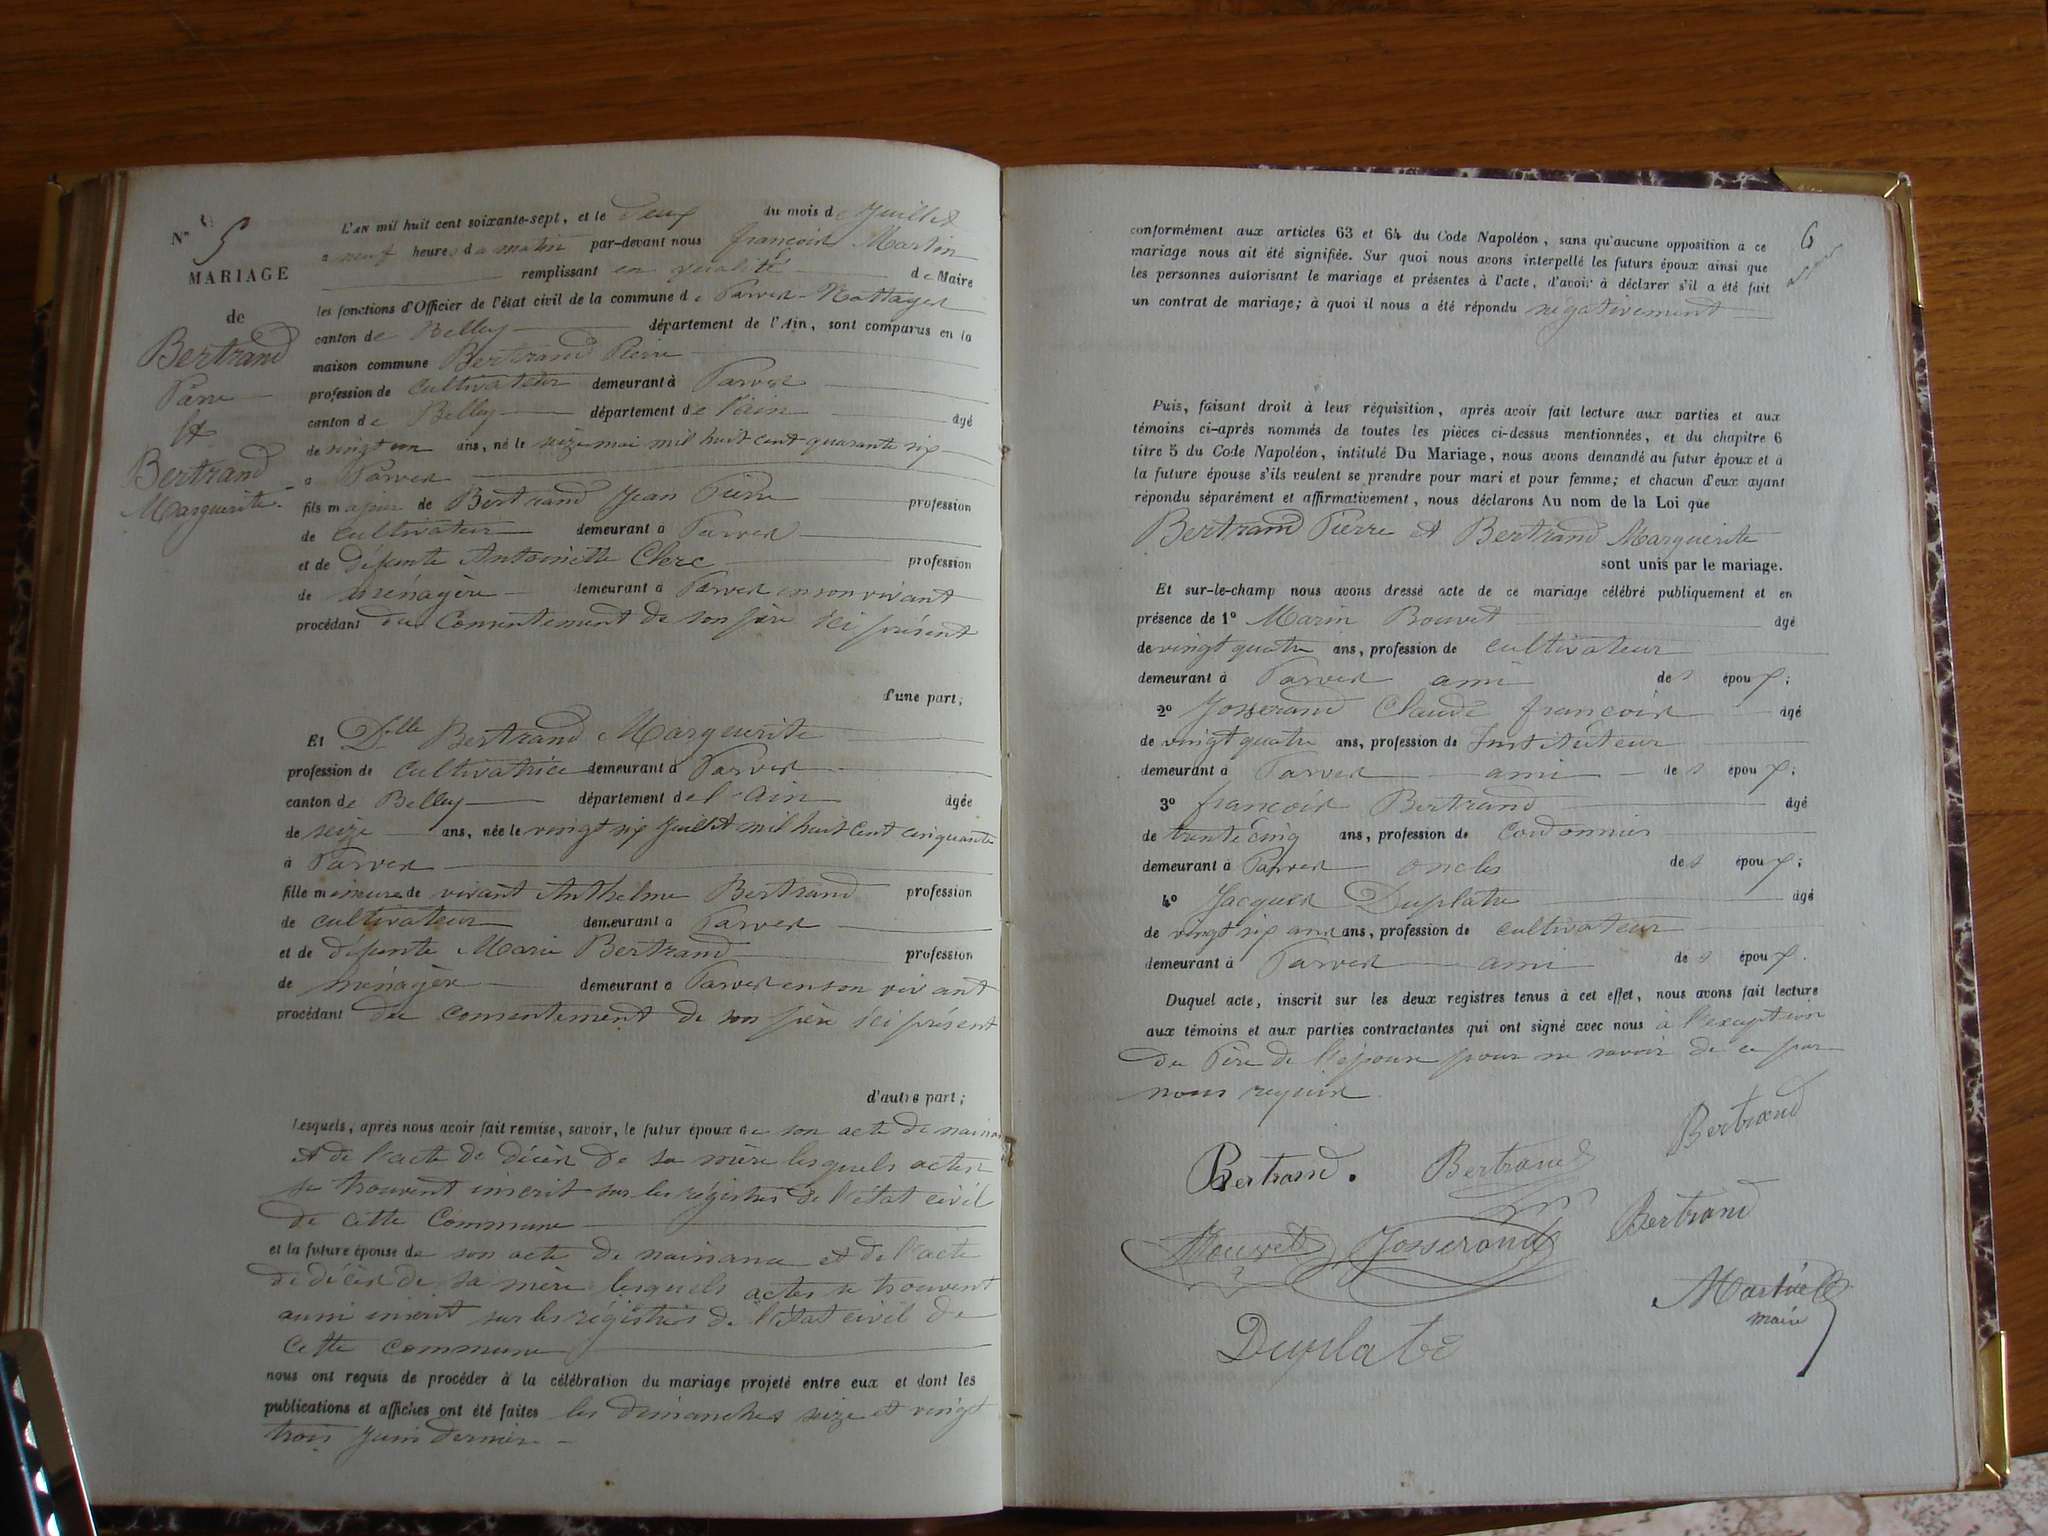 N° 5
MARIAGE
de
Bertrand
Pierre
et
Bertrand
Marguerite
L'AN mil huit cent soixante-sept, et le deux du mois de Juillet
à neuf heures du matin par-devant nous françois Martin
remplissant en qualité de Maire
les fonctions d'Officier de l'état civil de la commune de Parves-Nattages
canton de Belley département de l'Ain, sont comparus en la
maison commune Bertrand Pierre
profession de cultivateur demeurant à Parves
canton de Belley département de l'ain âgé
de vingt un ans, né le seize mai mil huit cent quarante six
à Parves
fils majeur de Bertrand Jean Pierre profession
de cultivateur demeurant à Parves
et de défunte Antoinette Clerc profession
de ménagère demeurant à Parves en son vivant
procédant du Consentement de son père ici présent
d'une part;
Et Dlle Bertrand Marguerite
profession de cultivatrice demeurant à Parves
canton de Belley département de l'ain âgée
de seize ans, née le vingt six Juillet mil huit cent cinquante
à Parves
fille mineure de vivant Anthelme Bertrand profession
de cultivateur demeurant à Parves
et de défunte Marie Bertrand profession
de ménagère demeurant à Parves en son vivant
procédant du consentement de son père ici présent
d'autre part;
Lesquels, après nous avoir fait remise, savoir, le futur époux de son acte de naissance
et de l'acte de décès de sa mère lesquels actes
se trouvent inscrit sur les régistres de l'état civil
de cette Commune
et la future épouse de son acte de naissance et de l'acte
de décès de sa mère lesquels actes se trouvent
aussi inscrit sur les régistres de l'état civil de
cette commune
nous ont requis de procéder à la célébration du mariage projeté entre eux et dont les
publications et affiches ont été faites les dimanches seize et vingt
trois Juin dernier
6
conformément aux articles 63 et 64 du Code Napoléon, sans qu'aucune opposition a ce
mariage nous ait été signifiée. Sur quoi nous avons interpellé les futurs époux ainsi que
les personnes autorisant le mariage et présentes à l'acte, d'avoir à déclarer s'il a été fait
un contrat de mariage; à quoi il nous a été répondu négativement
Puis, faisant droit à leur réquisition, après avoir fait lecture aux parties et aux
témoins ci-après nommés de toutes les pièces ci-dessus mentionnées, et du chapitre 6
titre 5 du Code Napoléon, intitulé Du Mariage, nous avons demandé au futur époux et à
la future épouse s'ils veulent se prendre pour mari et pour femme; et chacun d'eux ayant
répondu séparément et affirmativement, nous déclarons Au nom de la Loi que
Bertrand Pierre et Bertrand Marguerite
sont unis par le mariage.
Et sur-le-champ nous avons dressé acte de ce mariage célébré publiquement et en
présence de 1° Marin Bouvet âgé
de vingt quatre ans, profession de cultivateur
demeurant à Parves ami des époux;
2° Josserand Claude françois âgé
de vingt quatre ans, profession de Instituteur
demeurant à Parves ami des époux;
3° françois Bertrand âgé
de trente cinq ans, profession de cordonnier
demeurant à Parves oncles des époux;
4° Jacques Duplatre âgé
de vingt six ans ans, profession de cultivateur
demeurant à Parves ami des époux.
Duquel acte, inscrit sur les deux registres tenus à cet effet, nous avons fait lecture
aux témoins et aux parties contractantes qui ont signé avec nous à l'exception
du Père de l'épouse pour ne savoir de ce par
nous requis
Bertrand
Bertrand. Bertrand
Bertrand
Bouvet Josserand
Martin
maire
Duplatre